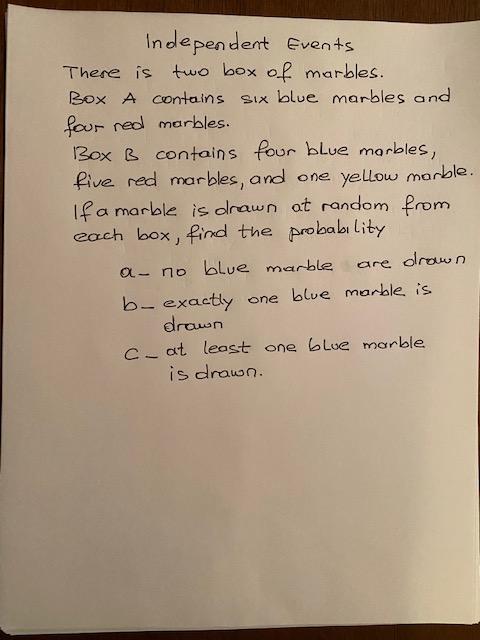 Independent Events
There is two box of marbles.
Box A contains six blue marbles and
four red marbles.
Box B contains four blue marbles,
five red marbles, and one yellow marble.
If a marble is drawn at random from
each box, find the probability
a- no blue marble are drown
b- exactly one blue marble is
drawn
c- at least one blue marble
is drawn.